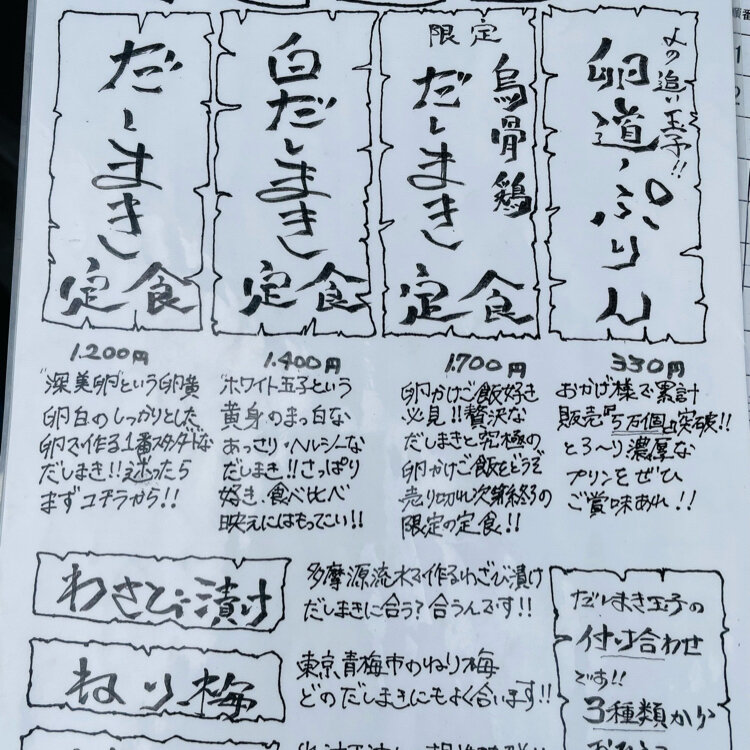 だしまき
定食
1.200円
"深美卵"という卵黄
卵白のしっかりとした
卵で作る1番スタンダードな
だしまき!!迷ったら
まずコチラから!!
白だしまき
定食
1.400円
"ホワイト玉子"という
黄身のまっ白な
あっさり・ヘルシーな
だしまき!!さっぱり
好き、食べ比べ
映えにはもってこい!!
限定
烏骨鶏
だしまき
定食
1.700円
卵かけご飯好き
必見!!贅沢な
だしまきと究極の
卵かけご飯をどうぞ
売り切れ次第終了の
限定の定食!!
追い玉子!!
卵道ぷりん
330円
おかげ様で累計
販売5万個突破!!
とろ〜り濃厚な
プリンをぜひ
ご賞味あれ!!
わさび漬け
多摩源流水で作るわさび漬け
だしまきに合う?合うんです!!
ねり梅
東京、青梅市のねり梅
どのだしまきにもよく合います!!
だしまき玉子の
付け合わせ
です!!
3種類から
1
2